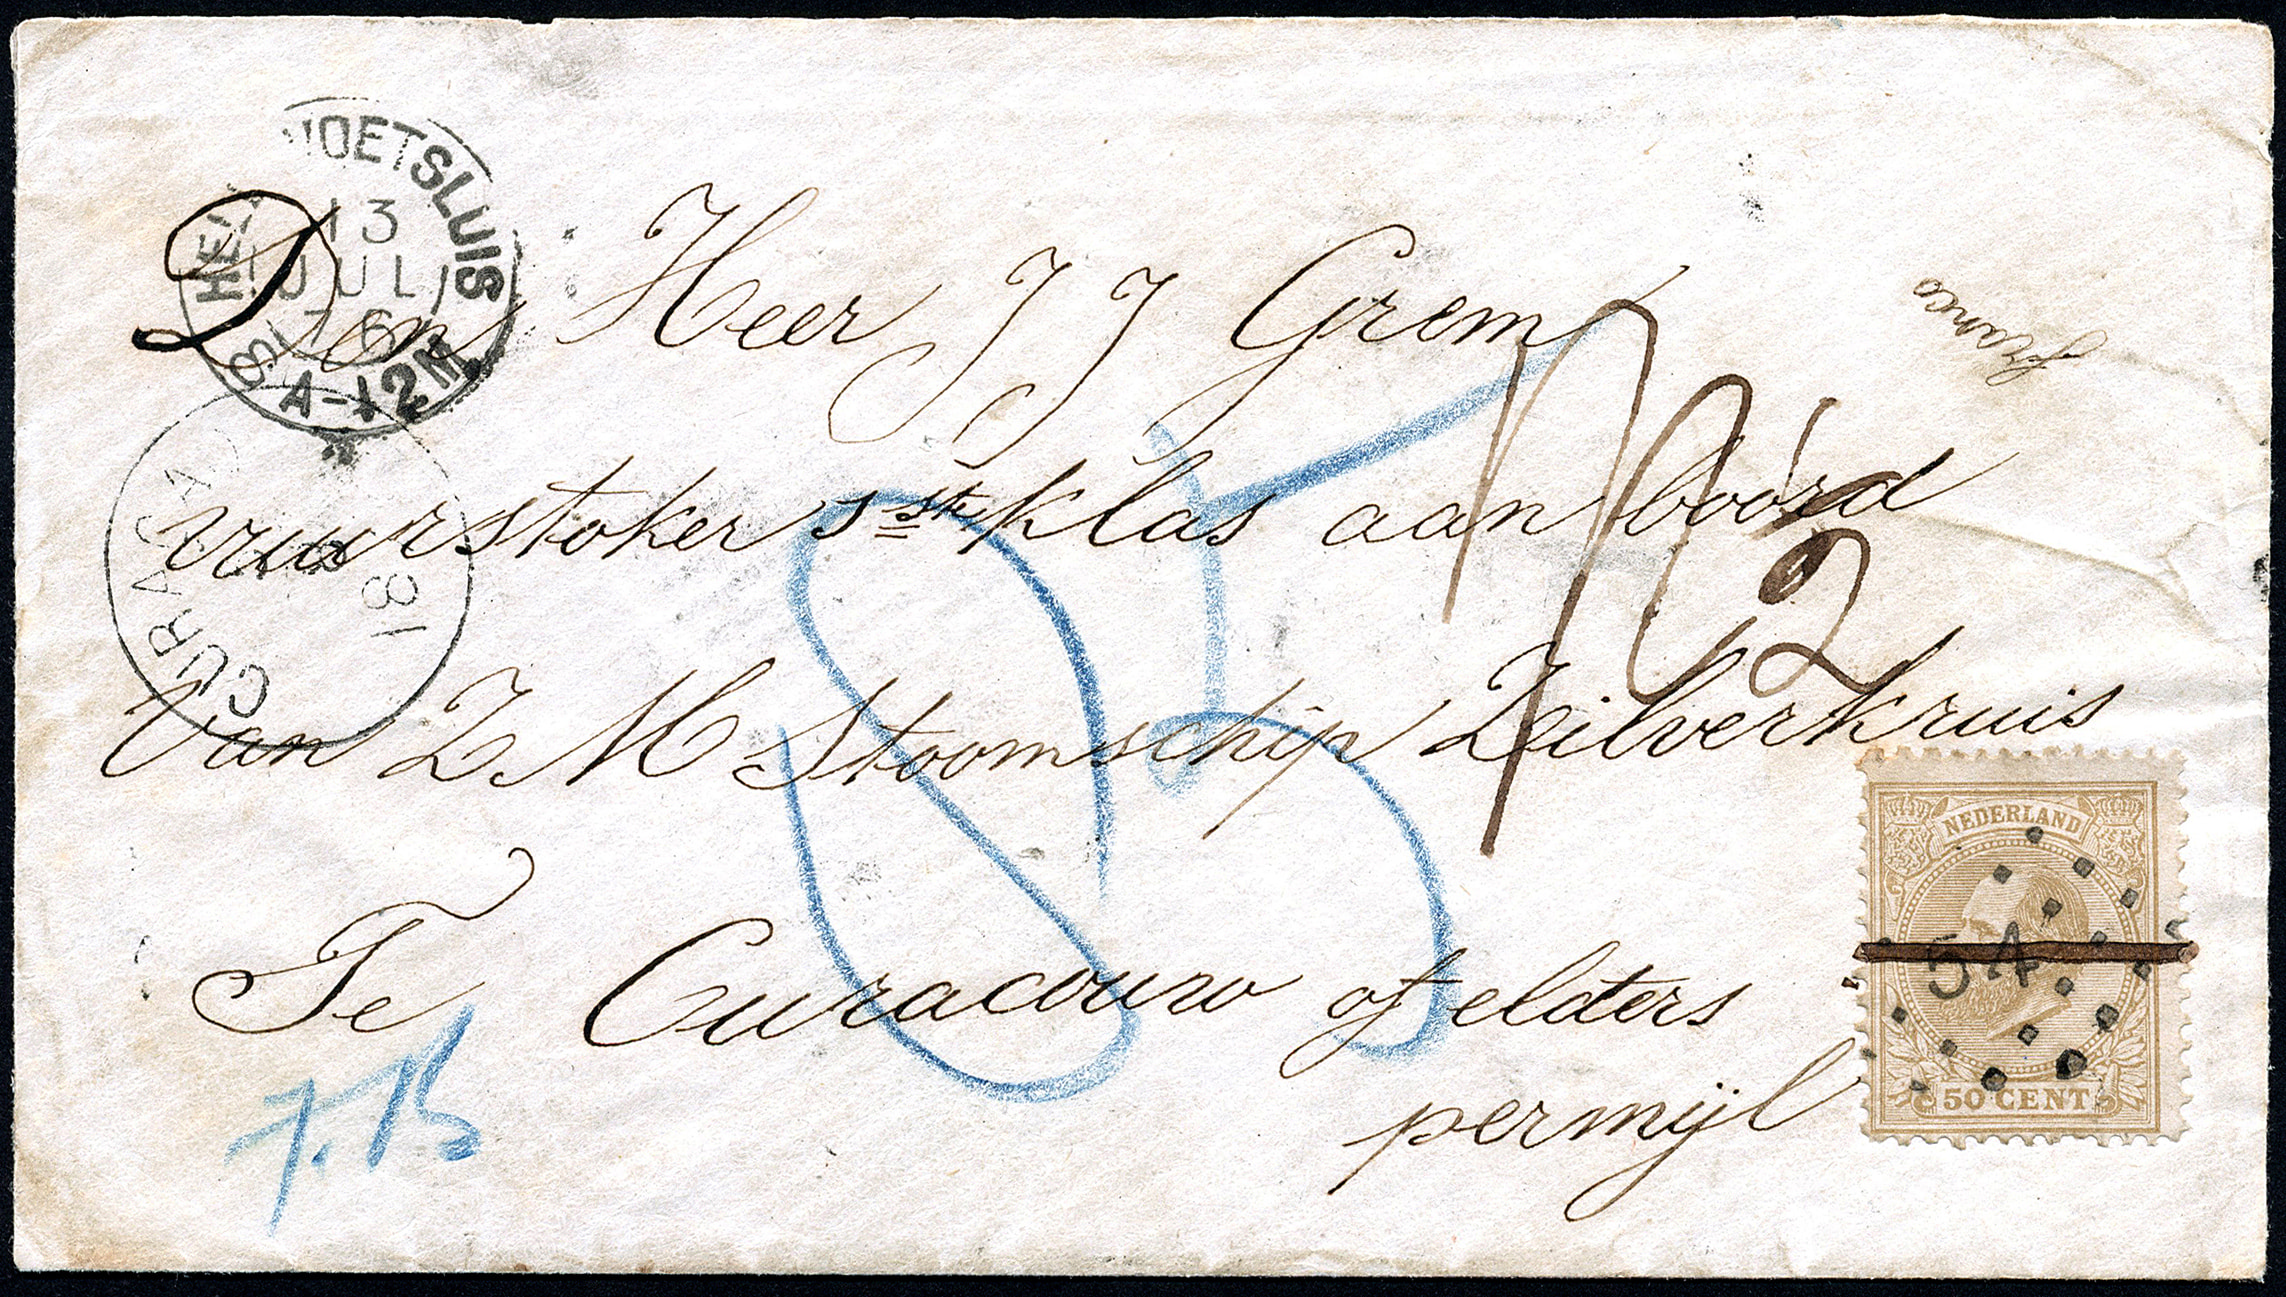 HELLEVOETSLUIS
13
JUL
76
8A-12M
franco
Den Heer J J Grem
vuurstoker 1ste klas aan boord
CURACAO
18
Van Z M Stoomschip Zilverkruis
Te Curacouw of elders
permijl
85
1/2
NEDERLAND
54
50 CENT